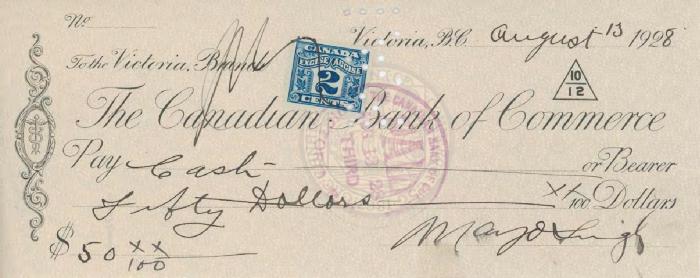 No.
Victoria, B.C. August 13 1928
To the Victoria, Branch
CANADA
EXCISE ACCISE
2
CENTS
10
12
The Canadian Bank of Commerce
Pay Cash or Bearer
Fifty Dollars xx/100 Dollars
$50 xx/100
Mayo Singh